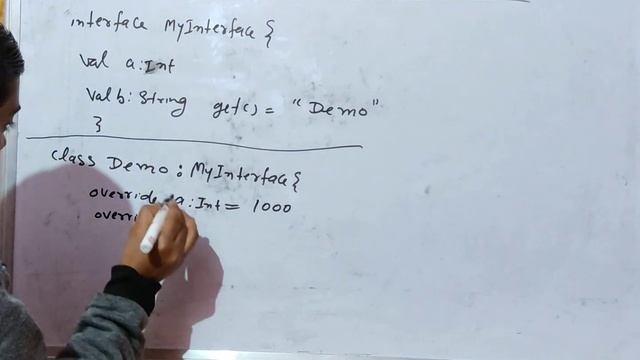 interface MyInterface {
val a:Int
val b: String get() = "Demo"
}
class Demo : MyInterface {
override a:Int = 1000
overri